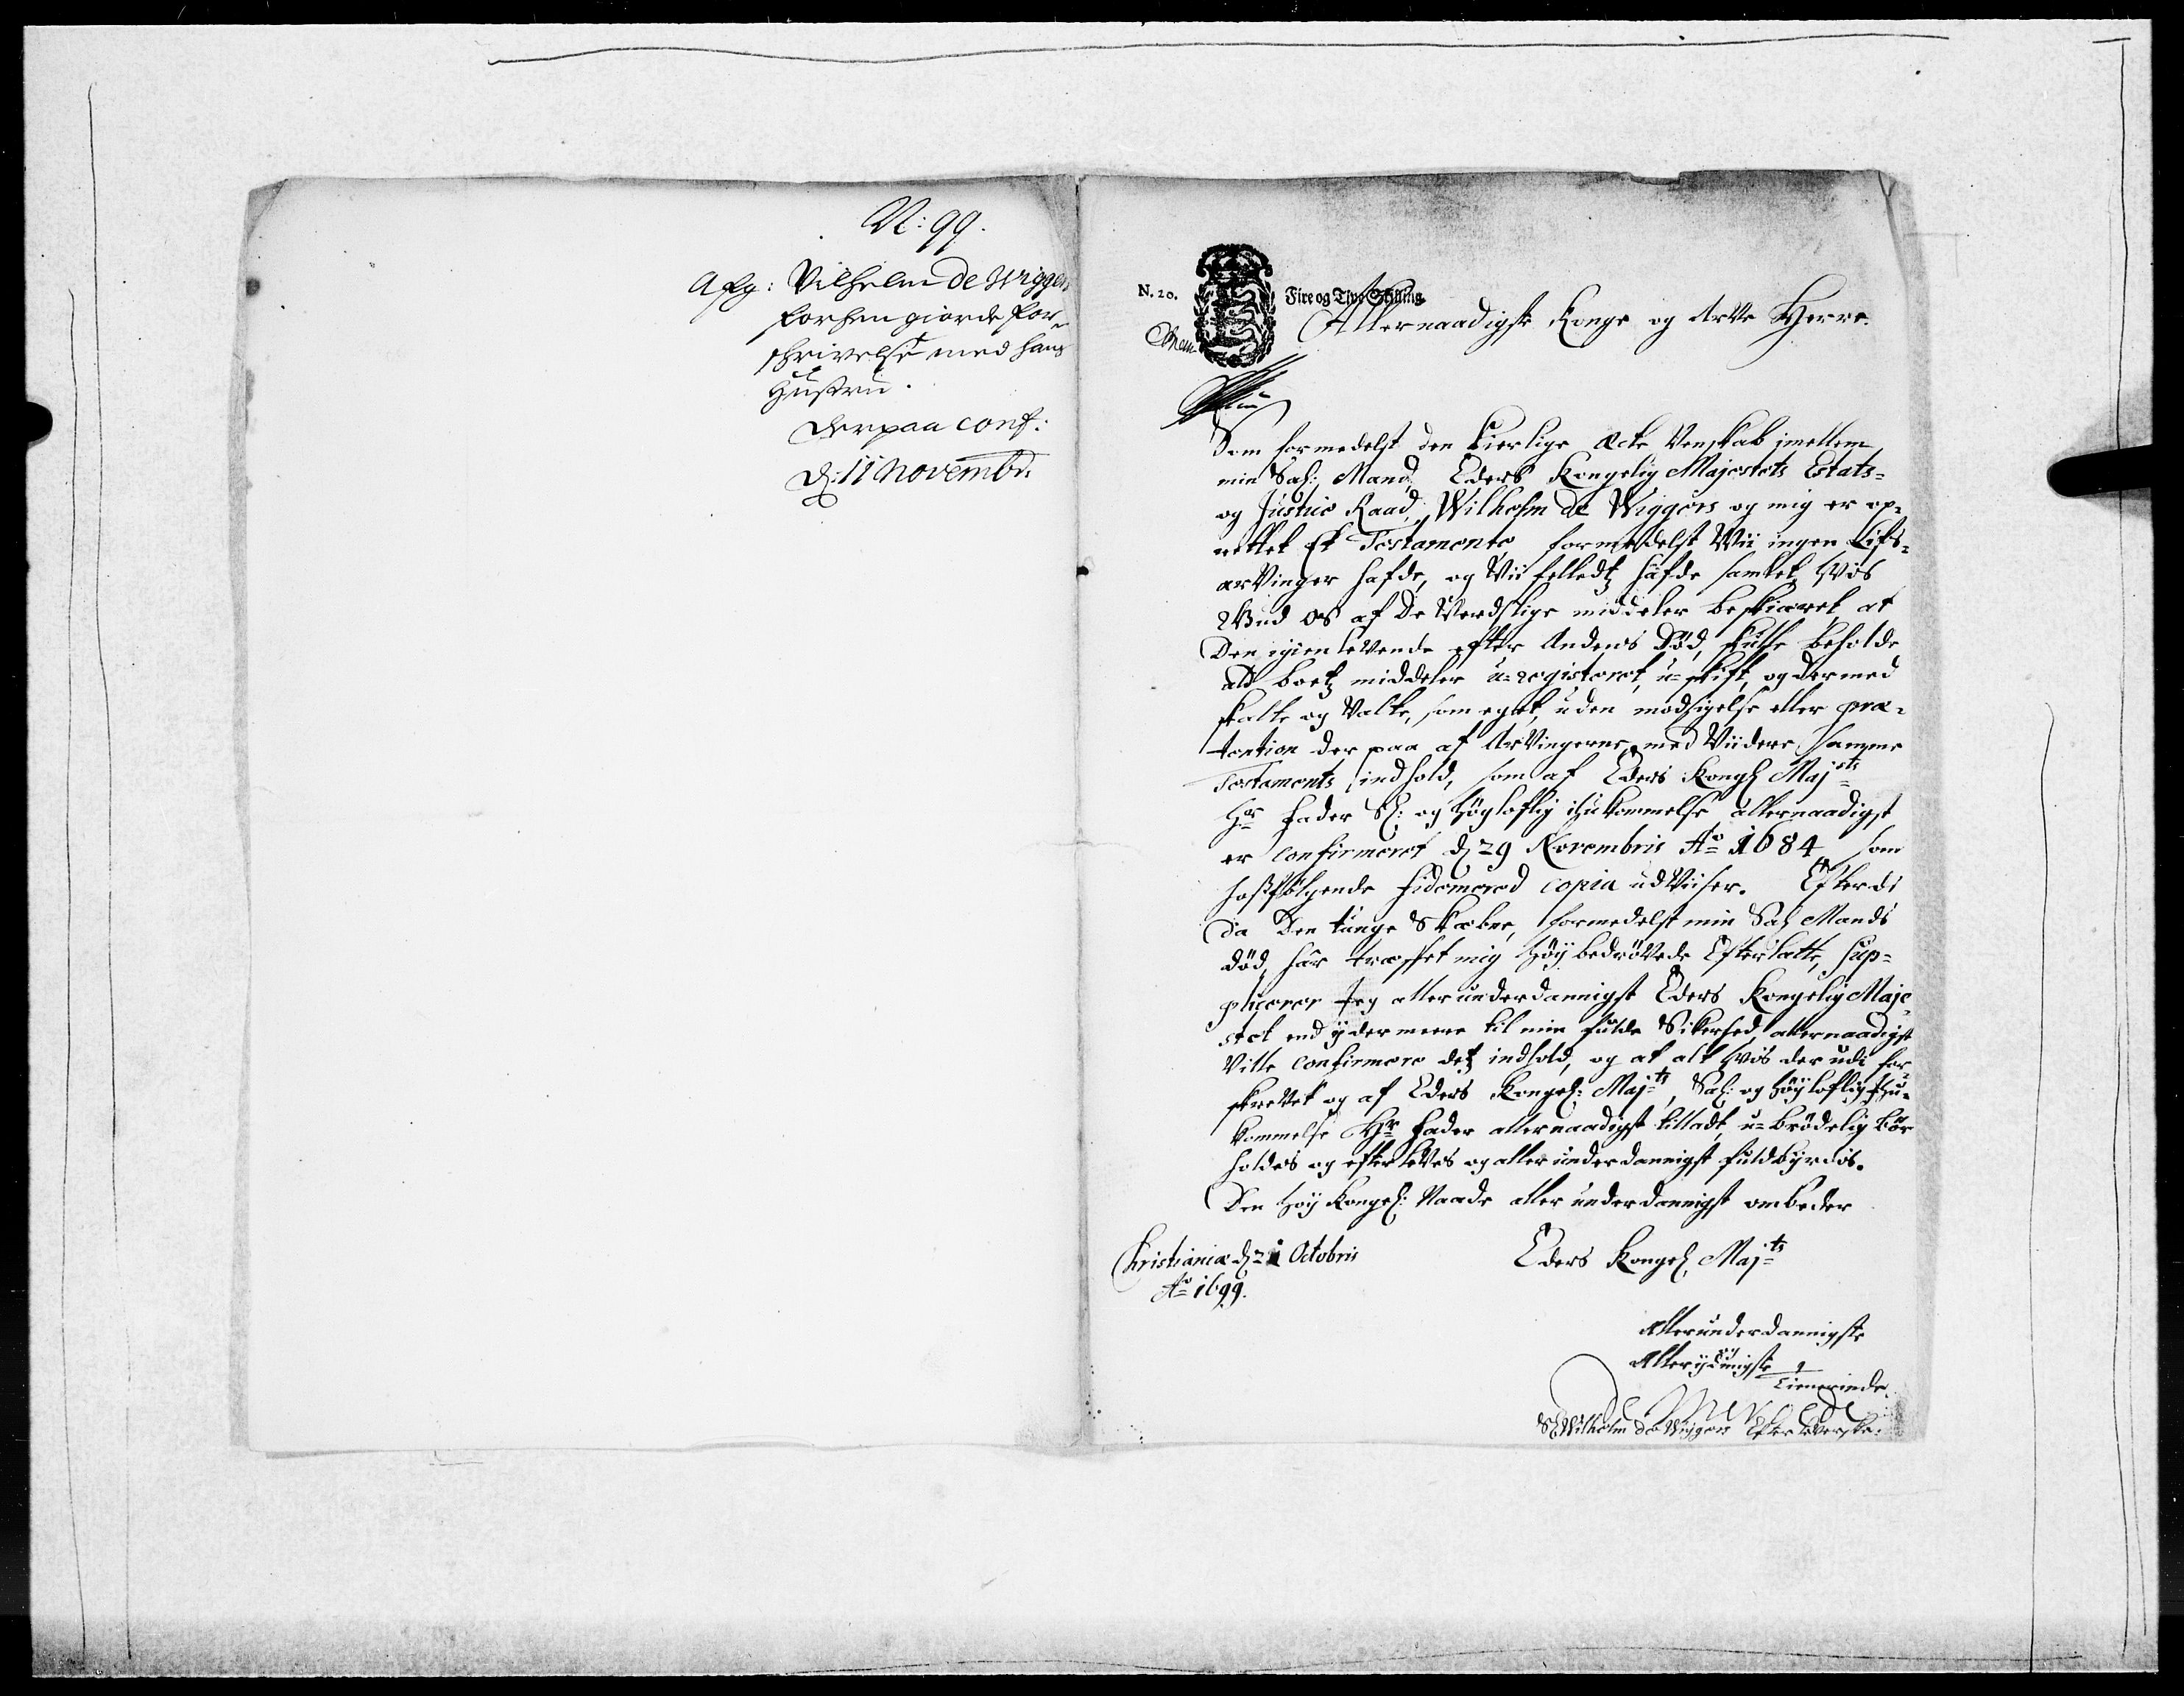 N: 99.
Afg: Vilhelm de Wigger
forhen giorde for-
schrivelse med hans
Hustru.
Derpaa conf:
d: 11 Novembr:
N. 20.
Fire og Tive Skilling
Allernaadigste Konge og Arve Herre.
Som formedelst den kierlige ækte Venskab imellem
min Sal: Mand, Eders Kongelig Majestets Estats-
og Justitie Raad, Wilhelm de Wiggers og mig er op-
rettet Et Testamente formedelst Wii ingen Lifs-
arVinger hafde, og Vii felledtz hafde samlet, hvis
Gud os af De Verdslige middeler beskiæret, at
Den igienlevende efter Andens Död, skulle beholde
ald boetz middeler u-registeret, u-skift, og dermed
skalte og Valte, som eget, uden modsigelse eller præ-
tention der paa af ArVingerne, med Viidere samme
Testaments indhold, som af Eders Kongl Majts
Hr Fader Sl: og Höyloflig ihukommelse allernaadigst
er confirmeret d 29 Novembris Ao 1684 som
hosfölgende fidemered copia udViiser. Efterdi
da Den tunge Skæbne, formedelst min Sal Mands
död, har træffet mig höy bedrövede Efterlatte, sup-
plicerer Jeg allerunderdannigst Eders Kongelig Maje-
stet end ydermeere til min fulde Sikerhed, allernaadigst
Ville confirmere detz indhold, og at alt hvis der udi for-
skrevet og af Eders Kongel: Majts, Sal: og Höyloflig Ihu-
kommelse Hr Fader allernaadigst tilladt, u-brödelig bör
holdes og efterleves og allerunderdannigst fuldbyrdes.
Den höy Kongel: Naade allerunderdannigst ombeder
Christiania d 21 Octobris
Ao 1699.
Eders Kongel Majts
Allerunderdannigste
Allerydmygste
Tienerinde
Sl Wilhelm de Wiggers Efterleverske.